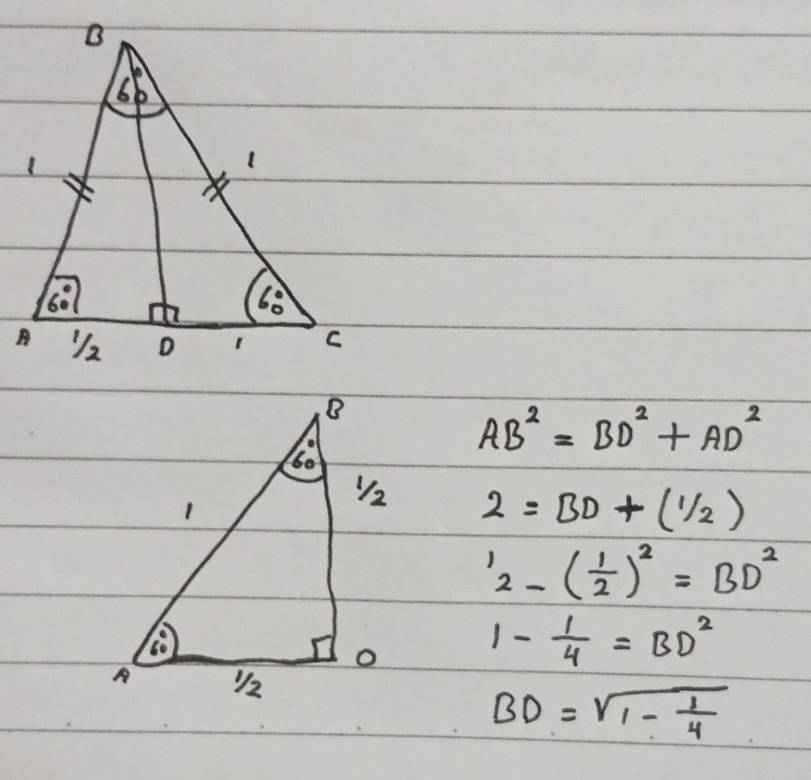 B
60°
1 1
60° 60°
A 1/2 D 1 C
B
60°
1/2
1
60°
A 1/2 O
AB² = BD² + AD²
2 = BD + (1/2)
1/2 - (1/2)² = BD²
1 - 1/4 = BD²
BD = √1 - 1/4